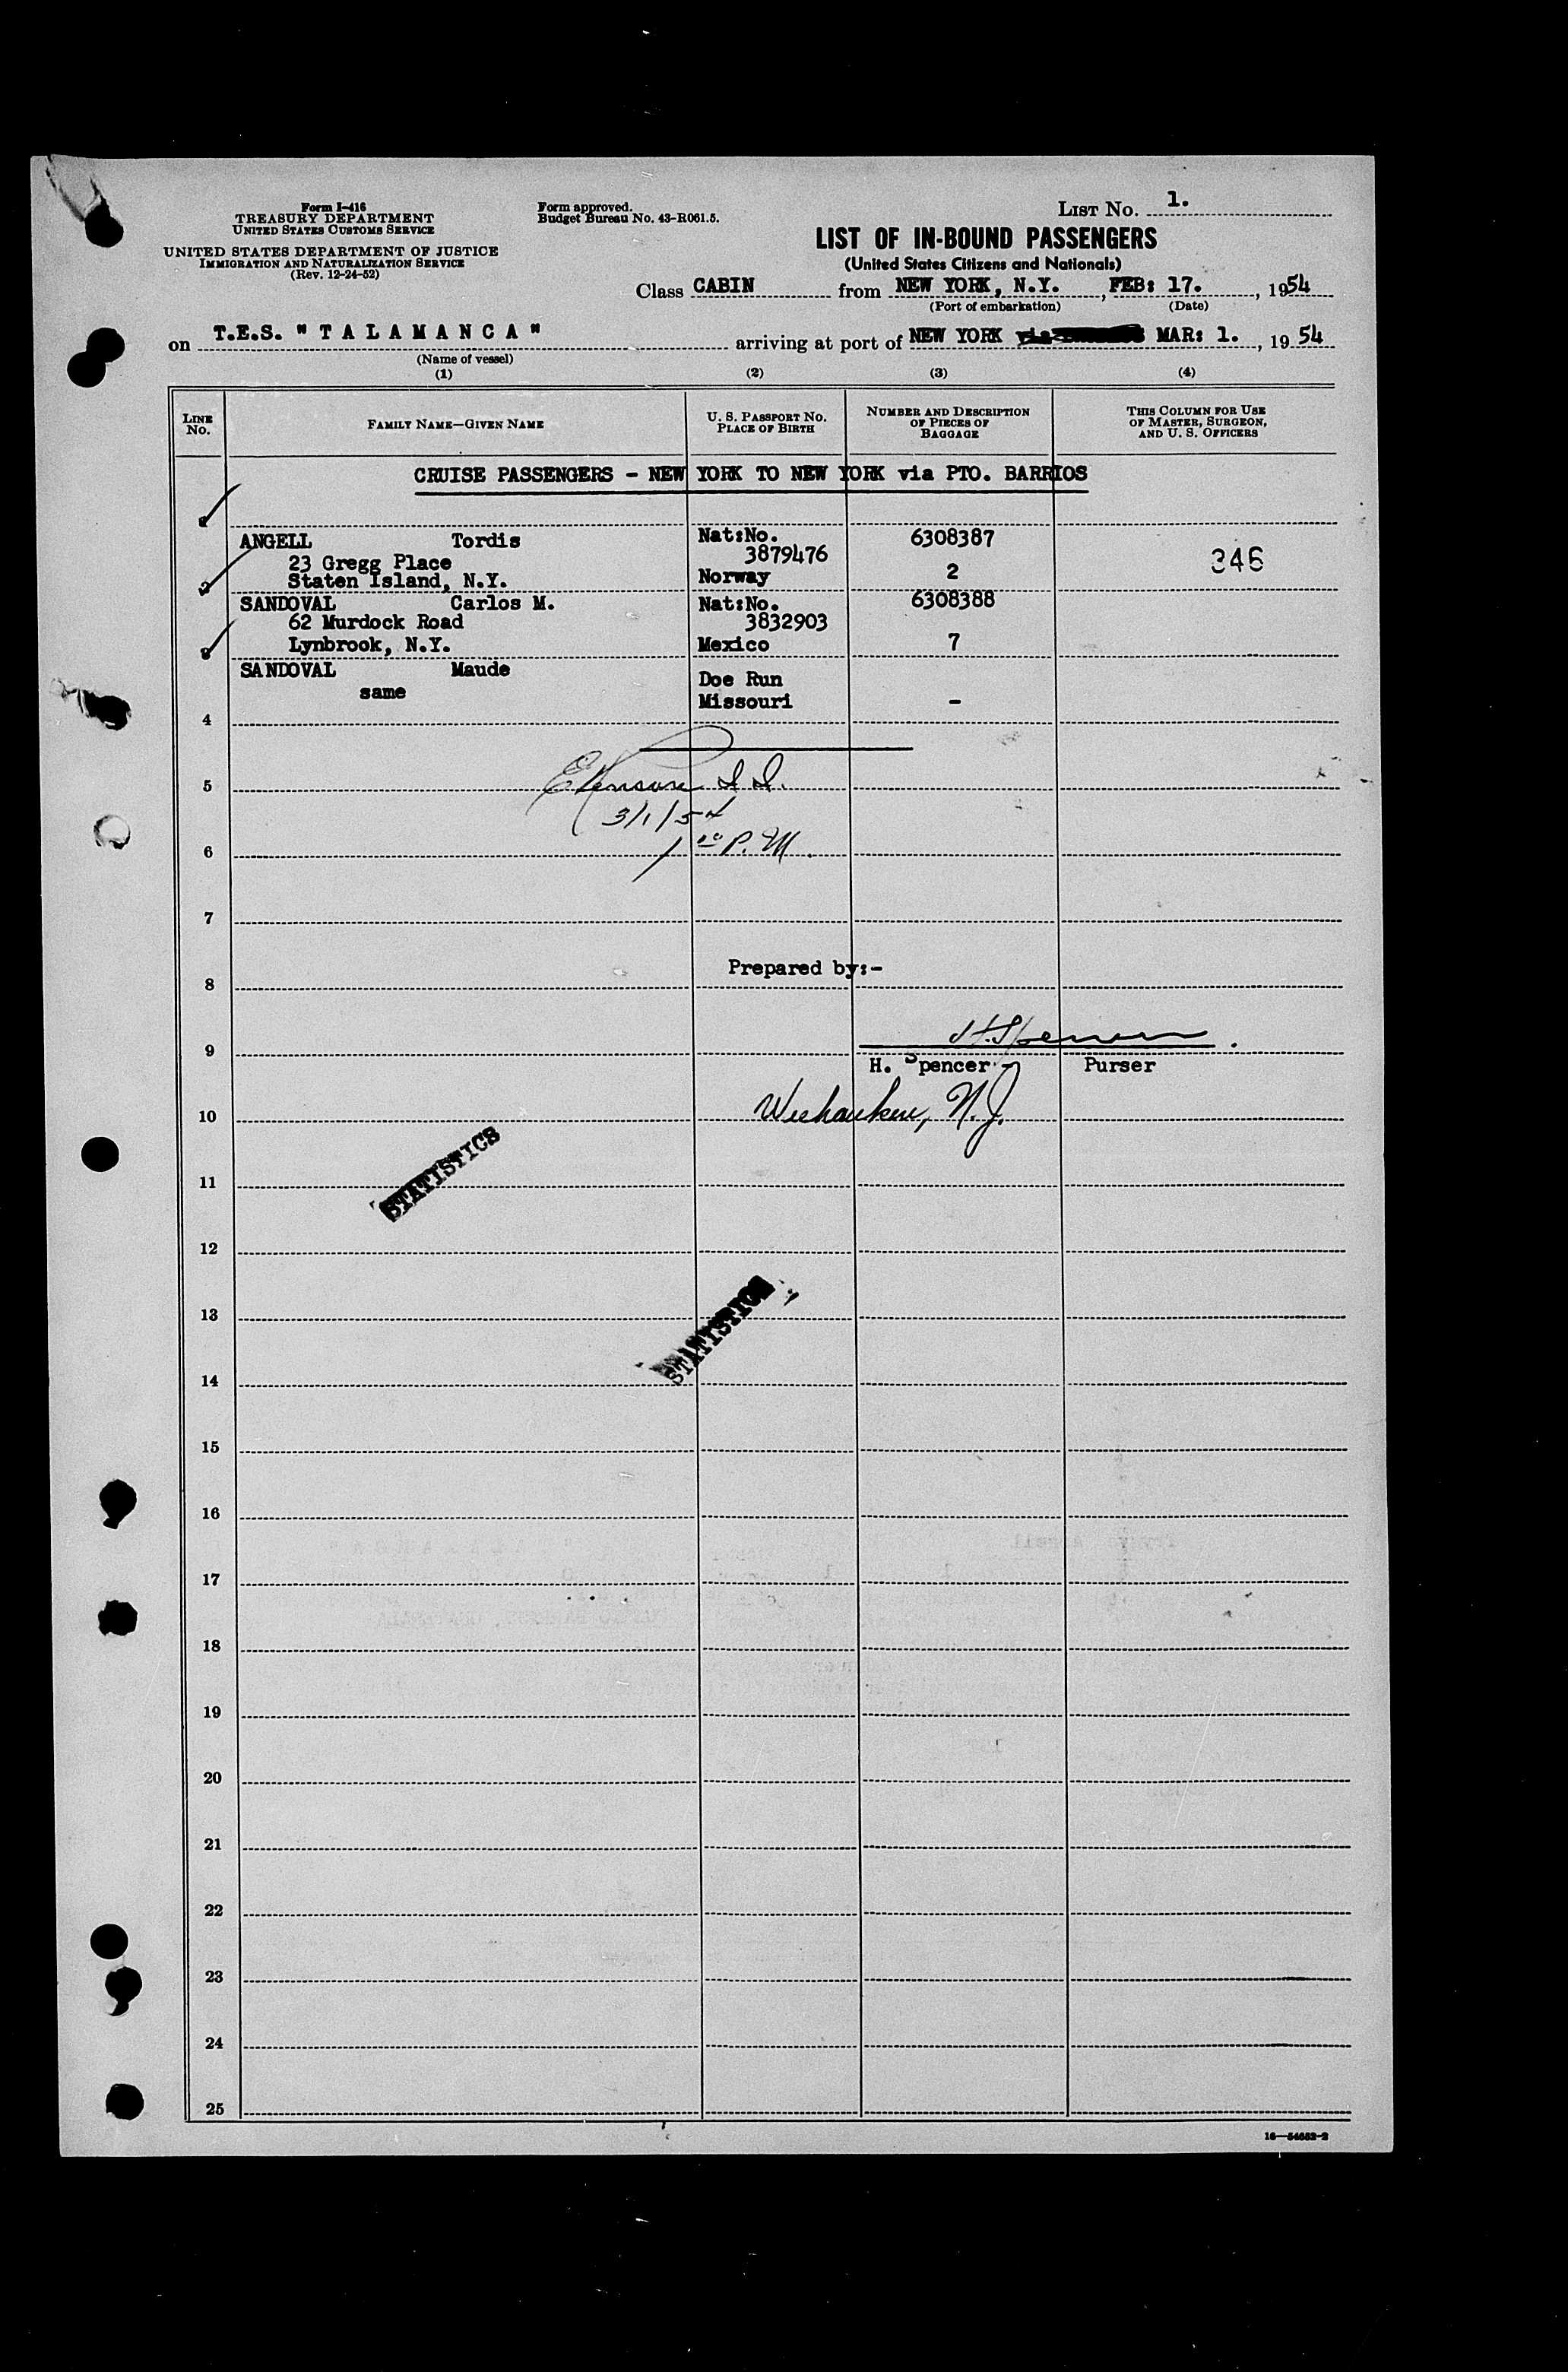 Form I-416
TREASURY DEPARTMENT
UNITED STATES CUSTOMS SERVICE
UNITED STATES DEPARTMENT OF JUSTICE
IMMIGRATION AND NATURALIZATION SERVICE
(Rev. 12-24-52)
Form approved.
Budget Bureau No. 43-R061.5.
LIST No. 1.
LIST OF IN-BOUND PASSENGERS
(United States Citizens and Nationals)
Class CABIN from NEW YORK, N.Y., FEB: 17., 1954
(Port of embarkation) (Date)
on T.E.S. "TALAMANCA" arriving at port of NEW YORK MAR: 1., 1954
(Name of vessel)
(1) (2) (3) (4)
LINE No.
FAMILY NAME—GIVEN NAME
U. S. PASSPORT NO.
PLACE OF BIRTH
NUMBER AND DESCRIPTION
OF PIECES OF
BAGGAGE
THIS COLUMN FOR USE
OF MASTER, SURGEON,
AND U. S. OFFICERS
CRUISE PASSENGERS - NEW YORK TO NEW YORK via PTO. BARRIOS
ANGELL Tordis Nat:No. 6308387
23 Gregg Place 3879476 346
Staten Island, N.Y. Norway 2
SANDOVAL Carlos M. Nat:No. 6308388
62 Murdock Road 3832903
Lynbrook, N.Y. Mexico 7
SANDOVAL Maude Doe Run
same Missouri -
4
5
3/1/54
6
P.M.
7
Prepared by:-
8
H. Spencer
9
H. Spencer Purser
Weehawken, N.J.
10
STATISTICS
11
12
STATISTICS
13
14
15
16
17
18
19
20
21
22
23
24
25
16—54652-2